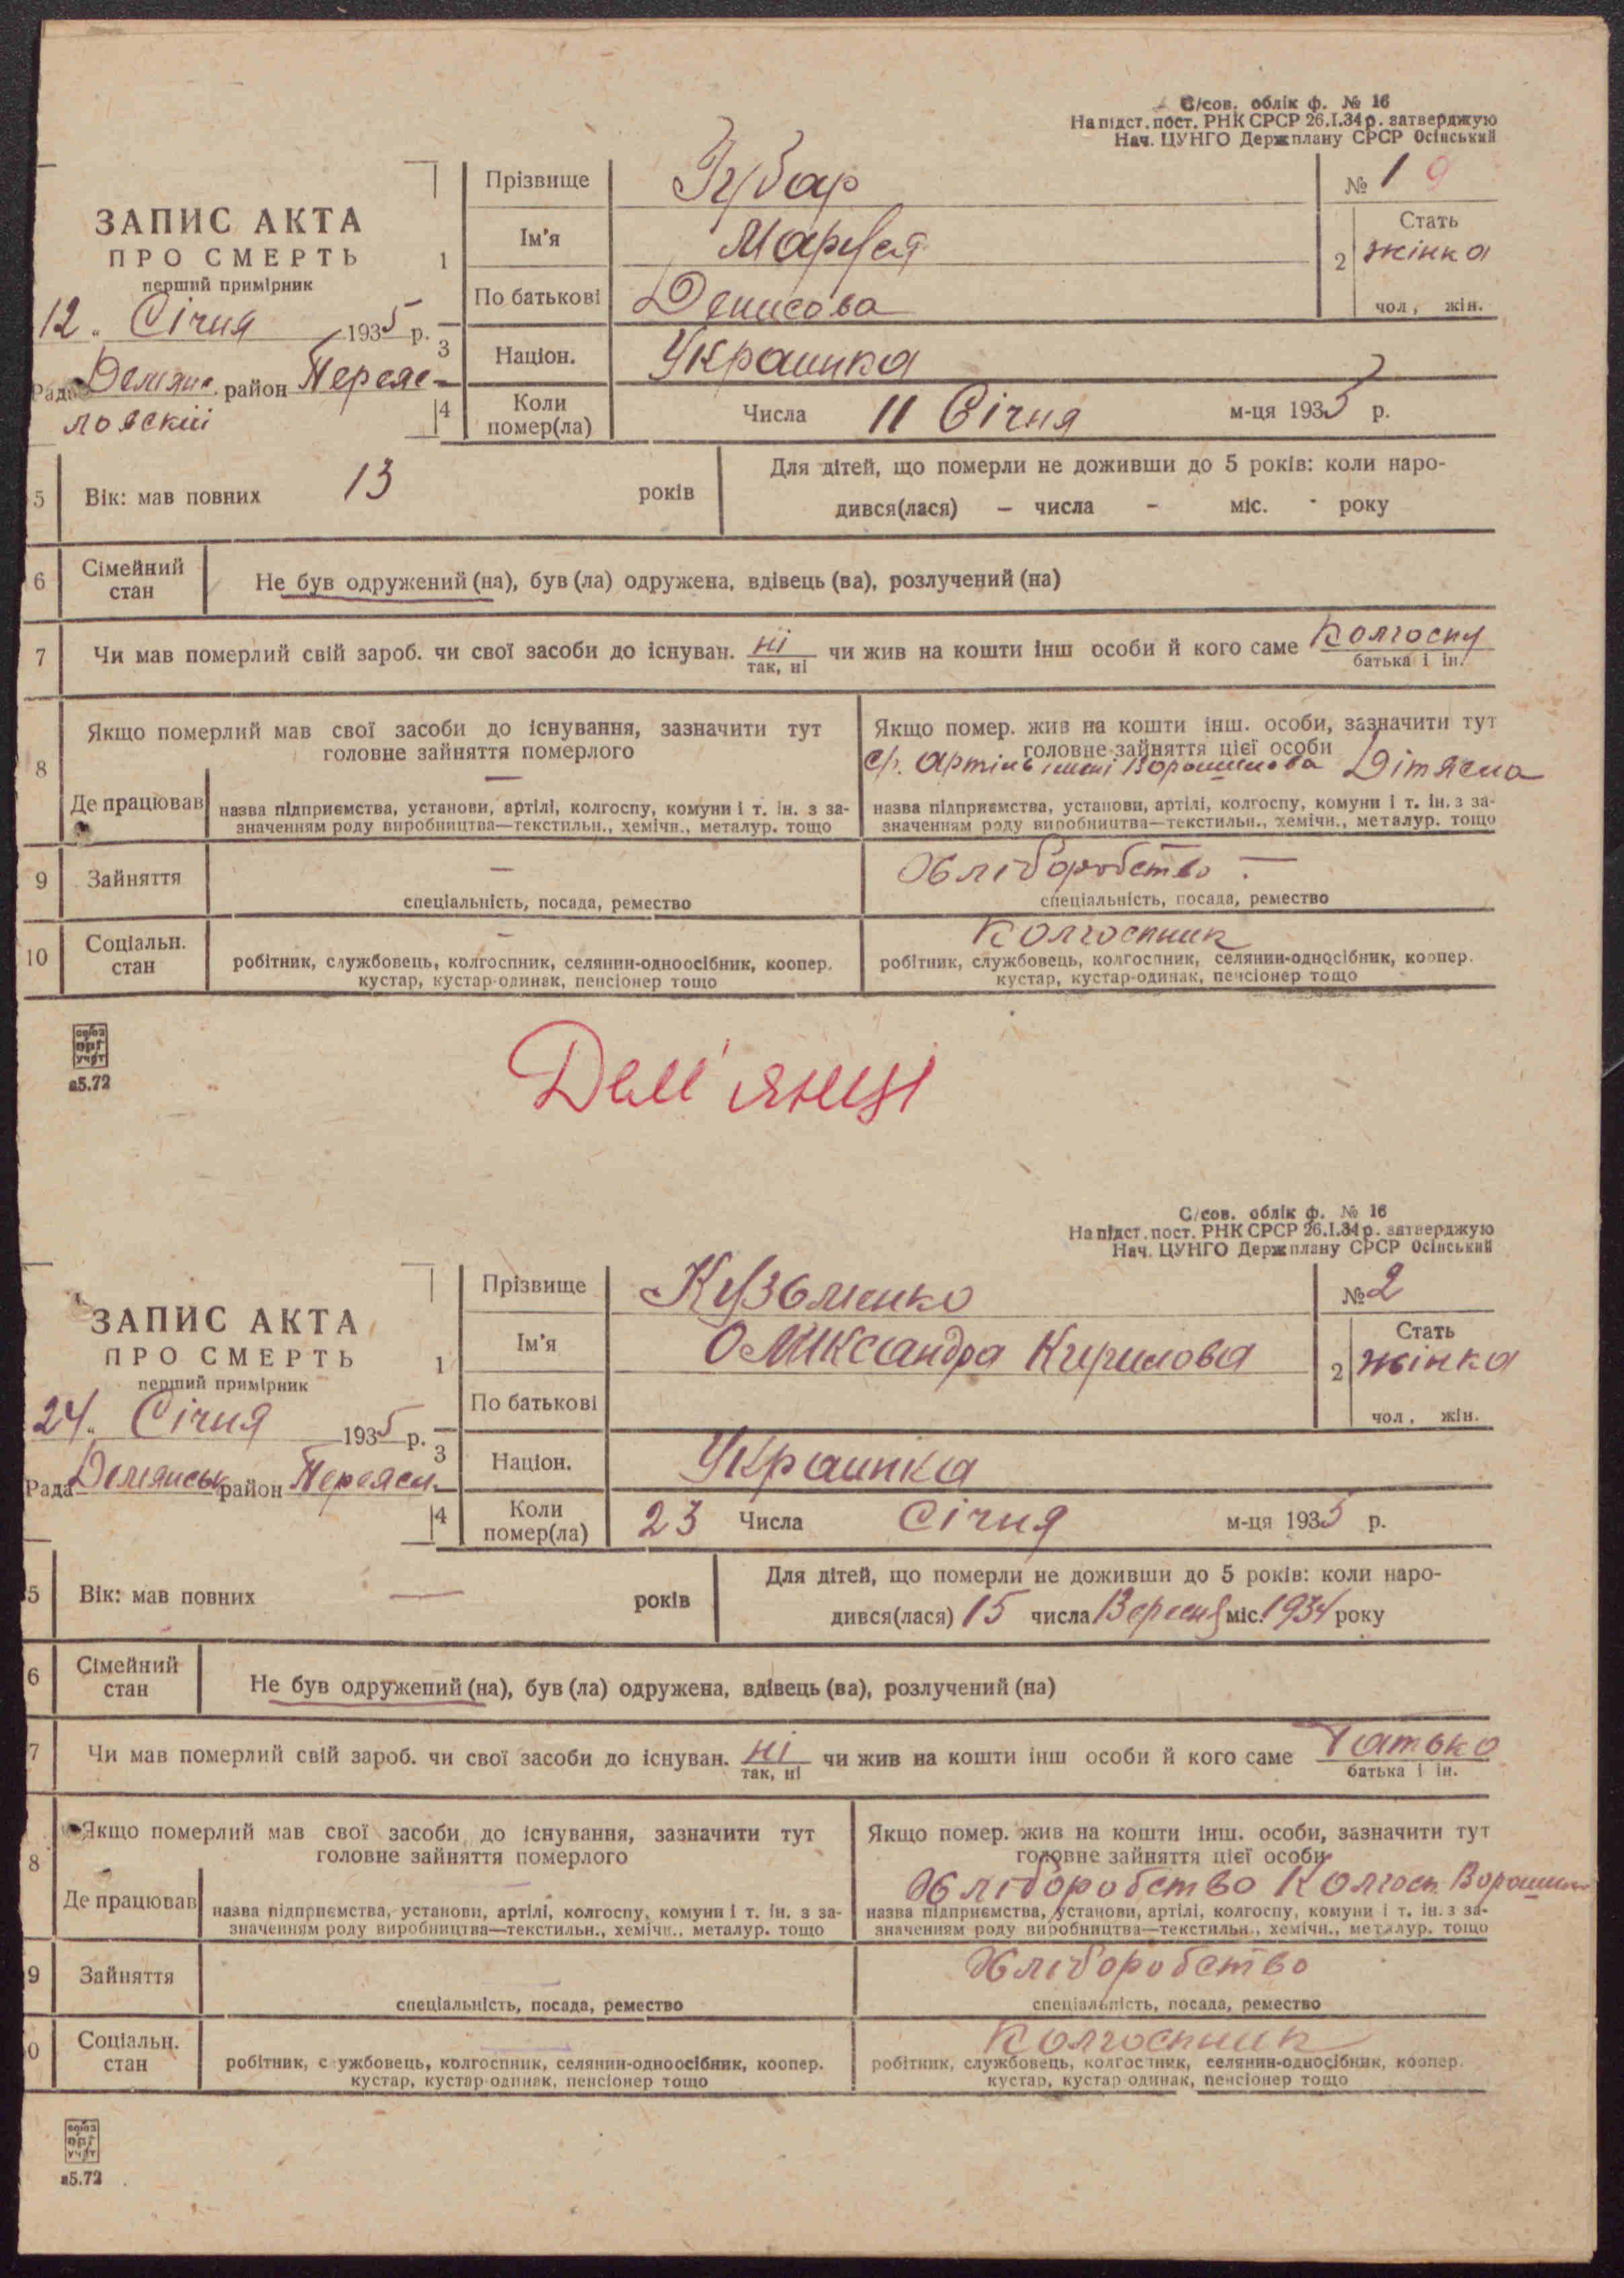 С/сов. облік ф. № 16
На підст. пост. РНК СРСР 26.I.34 р. затверджую
Нач. ЦУНГО Держплану СРСР Осінський
ЗАПИС АКТА
ПРО СМЕРТЬ
перший примірник
12. Січня 1935 р.
Рада Демянс. район Переяс-
лавскій
1 Прізвище Губар № 1
Ім'я Маруся 2 Стать жінка
По батькові Денисова чол, жін.
3 Націон. Украинка
4 Коли помер(ла) Числа 11 Січня м-ця 1935 р.
5 Вік: мав повних 13 років Для дітей, що померли не доживши до 5 років: коли наро-
дився(лася) - числа - міс. - року
6 Сімейний стан Не був одружений (на), був (ла) одружена, вдівець (ва), розлучений (на)
7 Чи мав померлий свій зароб. чи свої засоби до існуван. ні чи жив на кошти інш особи й кого саме Колгоспу
так, ні батька і ін.
8 Якщо померлий мав свої засоби до існування, зазначити тут
головне зайняття померлого
Якщо помер. жив на кошти інш. особи, зазначити тут
головне зайняття цієї особи
с/г. артіль імені Ворошилова
Де працював —
назва підприємства, установи, артілі, колгоспу, комуни і т. ін. з за-
значенням роду виробництва—текстильн., хемічн., металур. тощо
назва підприємства, установи, артілі, колгоспу, комуни і т. ін. з за-
значенням роду виробництва—текстильн., хемічн., металур. тощо
9 Зайняття — Хліборобство —
спеціальність, посада, ремество спеціальність, посада, ремество
10 Соціальн. стан — Колгоспник
робітник, службовець, колгоспник, селянин-одноосібник, коопер.
кустар, кустар-одинак, пенсіонер тощо
робітник, службовець, колгоспник, селянин-односібник, коопер.
кустар, кустар-одинак, пенсіонер тощо
союз
орг
учет
а5.72
Дем'янці
С/сов. облік ф. № 16
На підст. пост. РНК СРСР 26.I.34 р. затверджую
Нач. ЦУНГО Держплану СРСР Осінський
ЗАПИС АКТА
ПРО СМЕРТЬ
перший примірник
24. Січня 1935 р.
Рада Демянськ район Переясл-
1 Прізвище Кузьменко № 2
Ім'я Олександра Кирилова 2 Стать жінка
По батькові чол, жін.
3 Націон. Украинка
4 Коли помер(ла) 23 Числа Січня м-ця 1935 р.
5 Вік: мав повних — років Для дітей, що померли не доживши до 5 років: коли наро-
дився(лася) 15 числа Вересня міс. 1934 року
6 Сімейний стан Не був одружений (на), був (ла) одружена, вдівець (ва), розлучений (на)
7 Чи мав померлий свій зароб. чи свої засоби до існуван. ні чи жив на кошти інш особи й кого саме Батько
так, ні батька і ін.
8 Якщо померлий мав свої засоби до існування, зазначити тут
головне зайняття померлого
Якщо помер. жив на кошти інш. особи, зазначити тут
головне зайняття цієї особи
Хліборобство Колгосп Ворошил
Де працював
назва підприємства, установи, артілі, колгоспу, комуни і т. ін. з за-
значенням роду виробництва—текстильн., хемічн., металур. тощо
назва підприємства, установи, артілі, колгоспу, комуни і т. ін. з за-
значенням роду виробництва—текстильн., хемічн., металур. тощо
9 Зайняття Хліборобство
спеціальність, посада, ремество спеціальність, посада, ремество
0 Соціальн. стан Колгоспник
робітник, с ужбовець, колгоспник, селянин-одноосібник, коопер.
кустар, кустар одинак, пенсіонер тощо
робітник, службовець, колгоспник, селянин-односібник, коопер.
кустар, кустар одинак, пенсіонер тощо
союз
орг
учет
а5.72